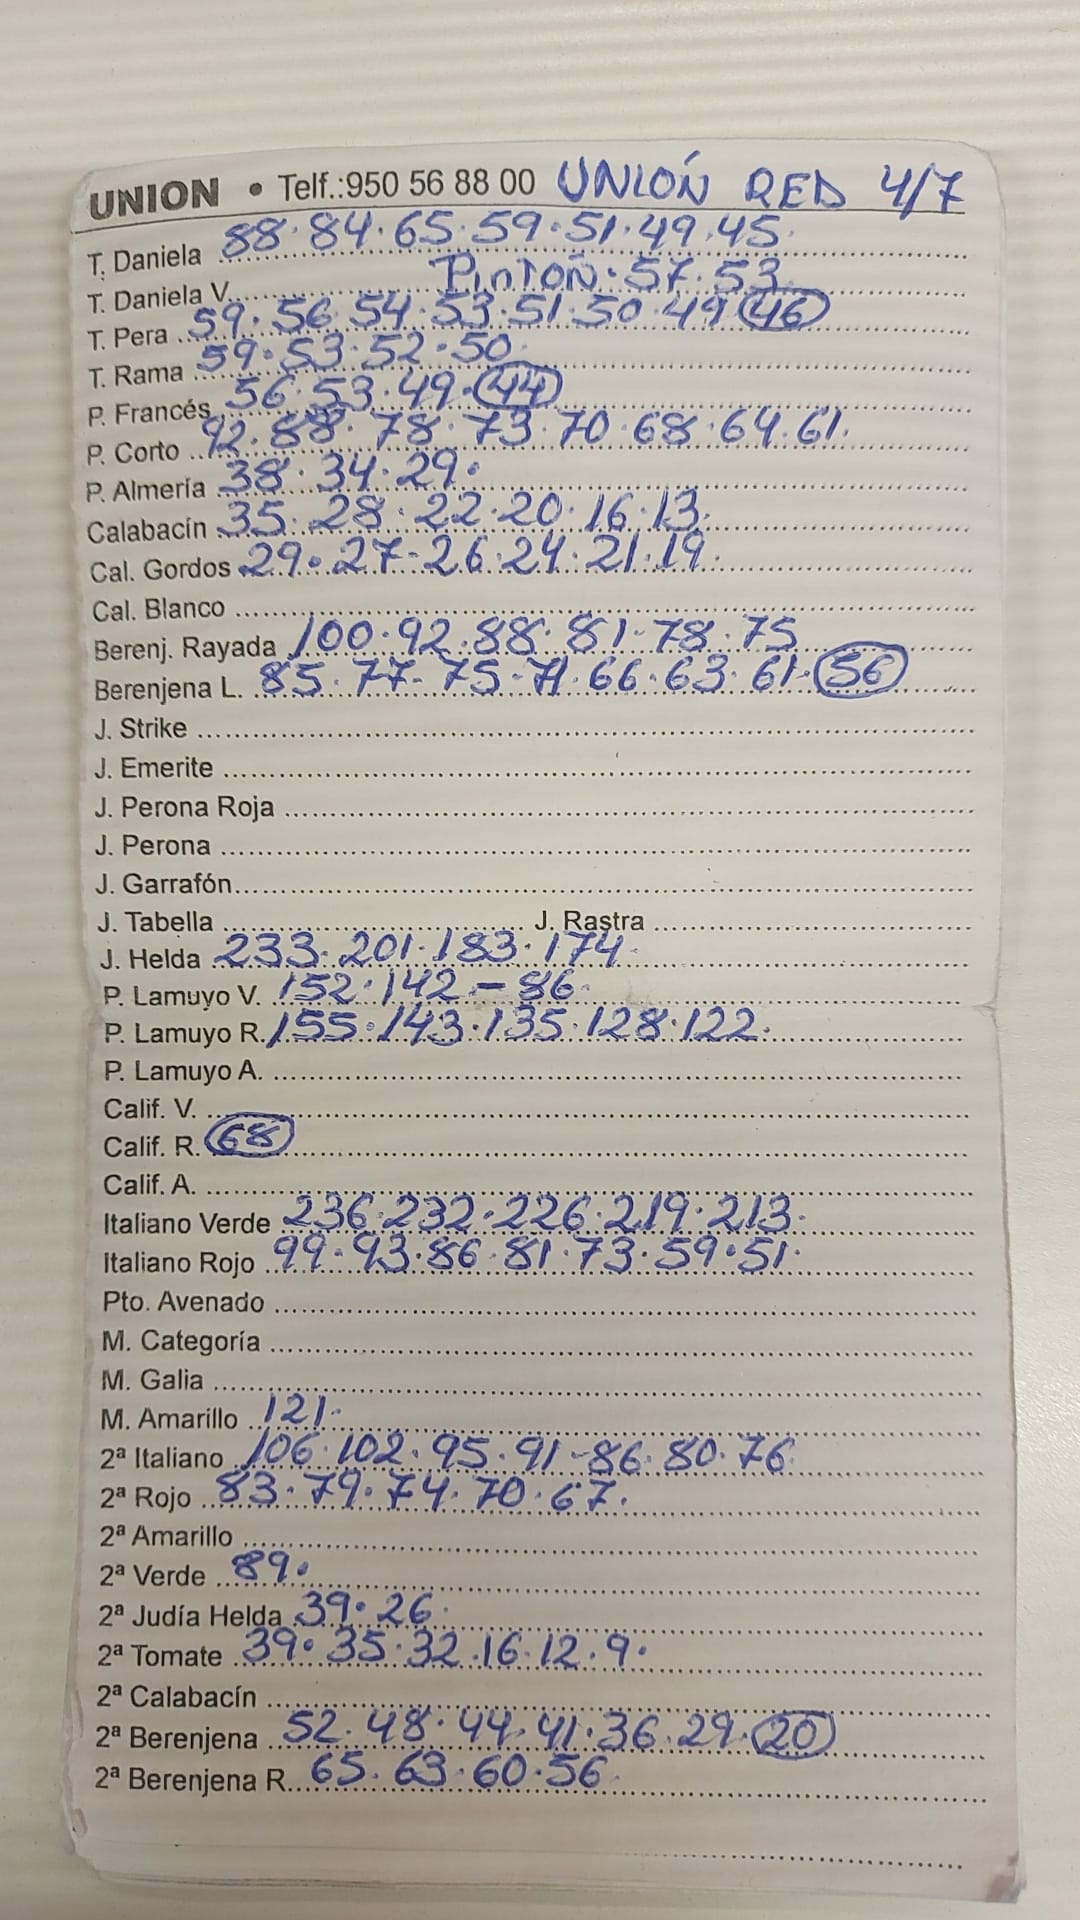 UNION • Telf.:950 56 88 00 UNIÓN RED 4/7
T. Daniela 88·84·65·59·51·49·45·
T. Daniela V. PINTÓN·57·53
T. Pera 59·56·54·53·51·50·49 46
T. Rama 59·53·52·50·
P. Francés 56·53·49·44
P. Corto 92·88·78·73·70·68·64·61·
P. Almería 38·34·29·
Calabacín 35·28·22·20·16·13·
Cal. Gordos 29·27-26·24·21·19·
Cal. Blanco
Berenj. Rayada 100·92·88·81-78·75
Berenjena L. 85·77-75-71·66·63·61·56
J. Strike
J. Emerite
J. Perona Roja
J. Perona
J. Garrafón
J. Tabella J. Rastra
J. Helda 233·201·183·174·
P. Lamuyo V. 152·142-86·
P. Lamuyo R. 155·143·135·128·122·
P. Lamuyo A.
Calif. V.
Calif. R. 68
Calif. A.
Italiano Verde 236·232·226·219·213·
Italiano Rojo 99·93·86·81·73·59·51·
Pto. Avenado
M. Categoría
M. Galia
M. Amarillo 121·
2ª Italiano 106·102·95·91-86·80·76
2ª Rojo 83·79·74·70·67·
2ª Amarillo
2ª Verde 89·
2ª Judía Helda 39·26·
2ª Tomate 39·35·32·16·12·9·
2ª Calabacín
2ª Berenjena 52·48·44·41·36·29·20
2ª Berenjena R. 65·63·60·56·